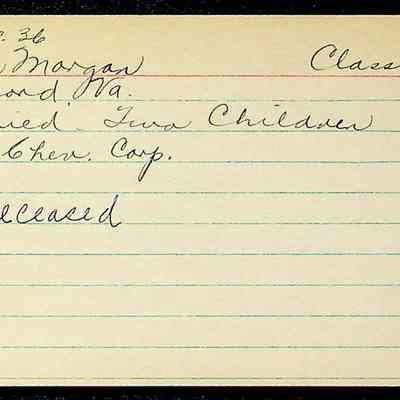 . 36
Morgan Class
ond, Va.
ied - Two Children
Chev. Corp.
eceased